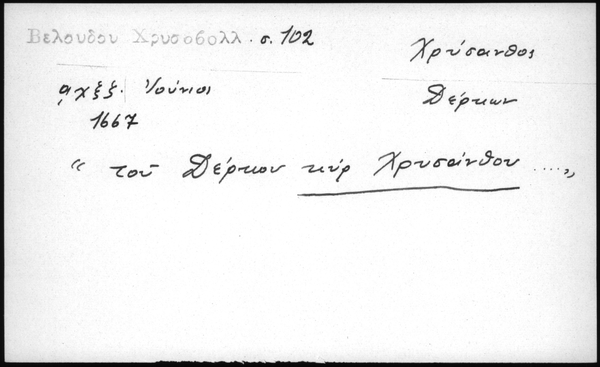 Βελουδου Χρυσοβολλ. σ. 102
Χρύσανθος
͵αχξζ. Ἰούνιος
Δέρκων
1667
“ τοῦ Δέρκου κὺρ Χρυσάνθου ....„